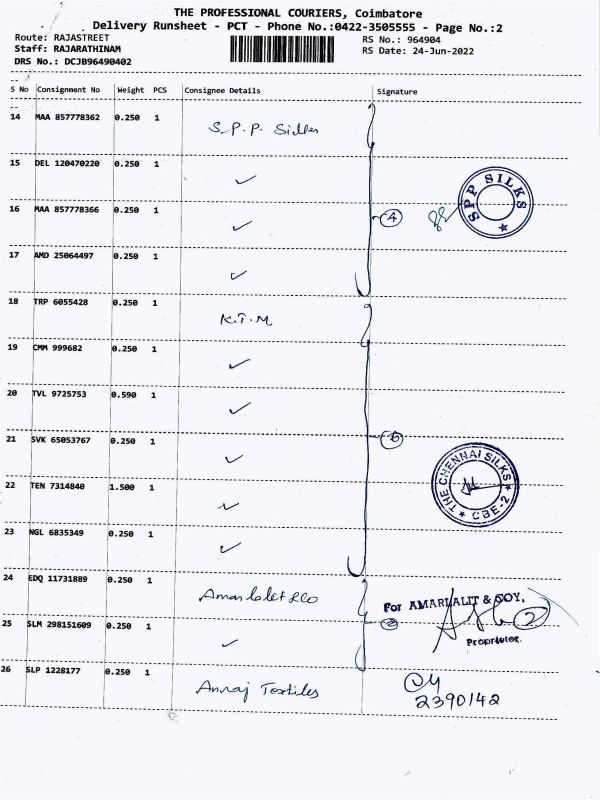 THE PROFESSIONAL COURIERS, Coimbatore
Delivery Runsheet - PCT - Phone No.:0422-3505555 - Page No.:2
Route: RAJASTREET
RS No.: 964904
Staff: RAJARATHINAM
RS Date: 24-Jun-2022
DRS No.: DCJB96490402
S No Consignment No Weight PCS Consignee Details Signature
14 MAA 857778362 0.250 1 S.P.P. Silks
15 DEL 120470220 0.250 1 ✓
16 MAA 857778366 0.250 1 ✓
4
SPP SILKS
17 AMD 25064497 0.250 1 ✓
18 TRP 6055428 0.250 1 K.T.M
19 CMM 999682 0.250 1 ✓
20 TVL 9725753 0.590 1 ✓
21 SVK 65053767 0.250 1 ✓
6
22 TEN 7314840 1.500 1 ✓
THE CHENNAI SILKS
CBE-2
23 NGL 6835349 0.250 1 ✓
24 EDQ 11731889 0.250 1 Amarlalit &co
For AMARLALIT & COY,
25 SLM 298151609 0.250 1 ✓
2
Proprietor
26 SLP 1228177 0.250 1 Annaj Textiles
2390142